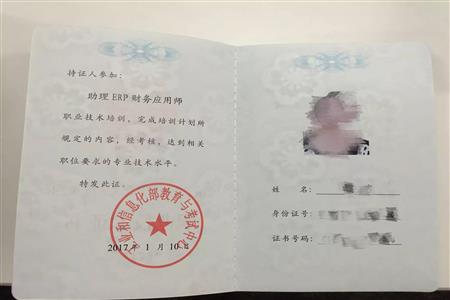 持证人参加：
助理 ERP 财务应用师
职业技术培训，完成培训计划所
规定的内容，经考核，达到相关
职位要求的专业技术水平。
特发此证。
工业和信息化部教育与考试中心
2017 年 1 月 10 日
姓 名：
身份证号：
证书号码：